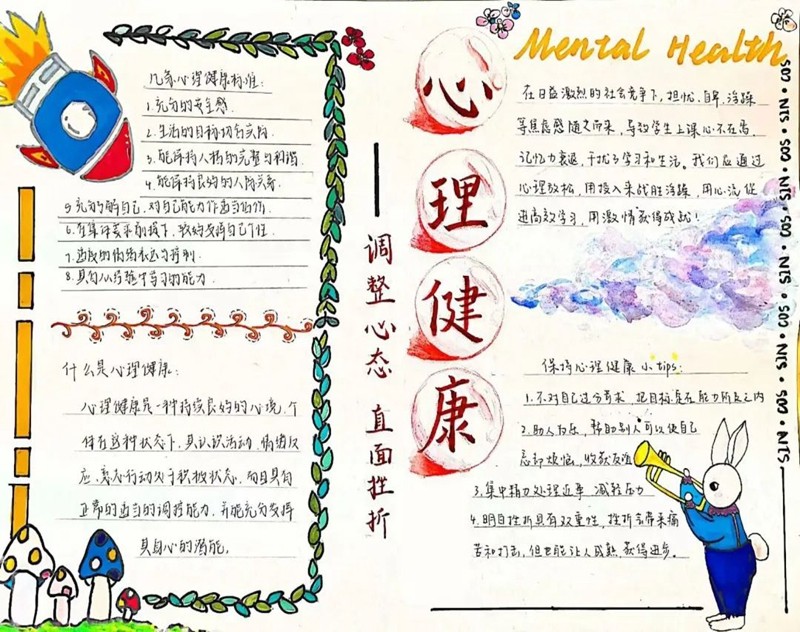 几条心理健康标准:
1.充分的安全感.
2.生活的目标切合实际.
3.能保持人格的完整与和谐
4.能保持良好的人际关系.
5.充分了解自己,对自己能力作适当估价.
6.在集体要求前提下,较好发挥自己个性.
7.适度的情绪表达与控制.
8.具有从经验中学习的能力.
什么是心理健康:
心理健康是一种持续良好的心境,个
体在这种状态下,其认识活动、情绪反
应、意志行动处于积极状态,而且具有
正常的适当的调控能力,并能充分发挥
其身心的潜能。
调整心态 直面挫折
心理健康
Mental Health
在日益激烈的社会竞争下,担忧、自卑、浮躁
等焦虑感随之而来,导致学生上课心不在焉,
记忆力衰退,干扰了学习和生活。我们应通过
心理放松,用投入来战胜浮躁,用心流促
进高效学习,用激情获得成就!
保持心理健康小tips:
1.不对自己过分苛求,把目标定在能力所及之内
2.助人为乐,帮助别人可以使自己
忘却烦恼,收获友谊
3.集中精力处理近事,减轻压力
4.明白挫折具有双重性,挫折会带来痛
苦和打击,但也能让人成熟,获得进步。